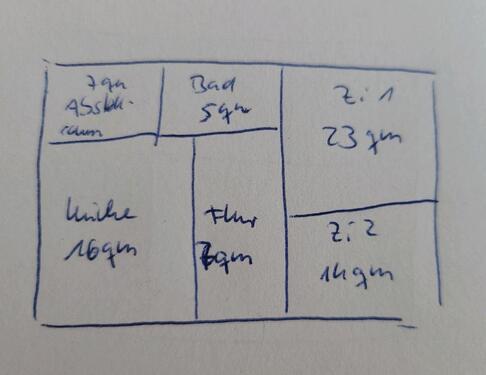 7qm
Abstell-
raum
Bad
5qm
Zi 1
23 qm
Küche
16qm
Flur
qm
Zi 2
14 qm